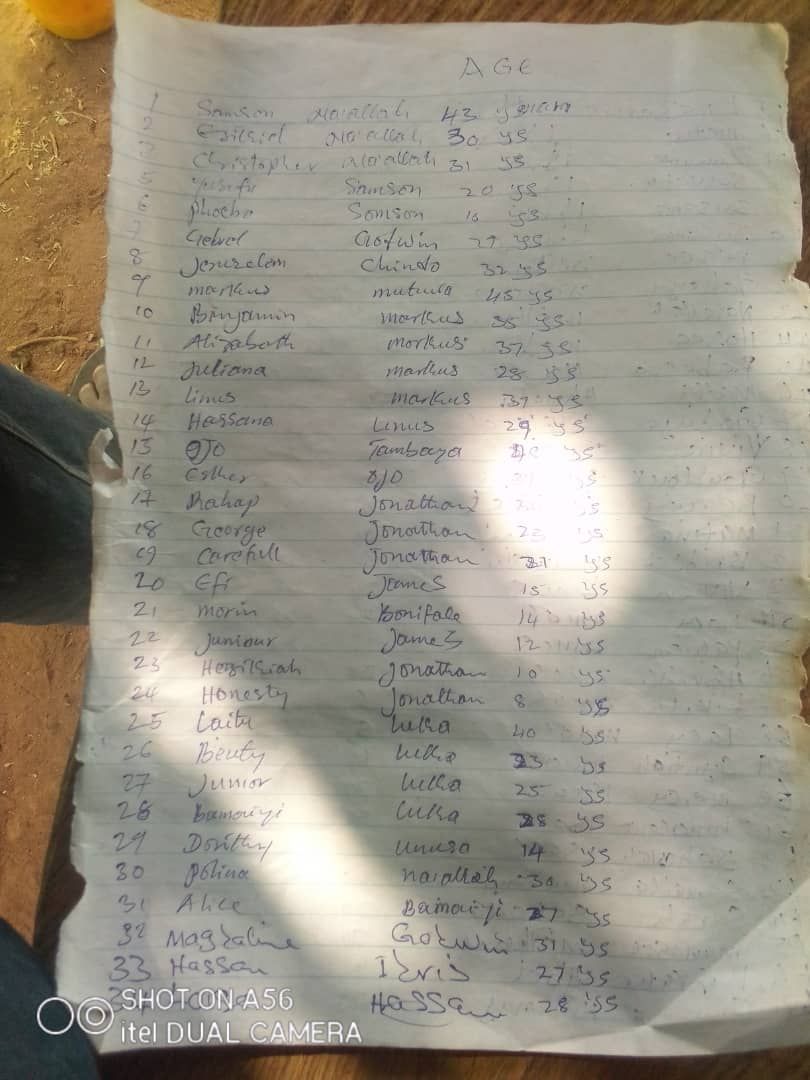 AGE
1 Samson Na'allah 43 years
2 Ezikiel Na'allah 30 ys
3 Christopher Na'allah 31 ys
5 Yusufu Samson 20 ys
6 Phoebe Samson 10 ys
7 Gebrel Gotwin 29 ys
8 Jeruzelem Chindo 32 ys
9 markus mutuwa 45 ys
10 Binjamin markus 35 ys
11 Alizabath markus 37 ys
12 Juliana markus 28 ys
13 Linus markus 31 ys
14 Hassana Linus 29 ys
15 OJO Tambaya ys
16 Esther OJO ys
17 Rahap Jonathan ys
18 George Jonathan 23 ys
19 Carefull Jonathan 21 ys
20 Efi James 15 ys
21 morin Boniface 14 ys
22 Juniour James 12 ys
23 Hezikiah Jonathan 10 ys
24 Honesty Jonathan 8 ys
25 Laitu Luka 40 ys
26 Beuty Luka 23 ys
27 Junior Luka 25 ys
28 Bamaiyi Luka 28 ys
29 Dorithy umusa 14 ys
30 Polina na'allah 30 ys
31 Alice Bamaiyi 27 ys
32 Magdaline Gotwin 31 ys
33 Hassan Idris 27 ys
Hassan 28 ys
SHOT ON A56
itel DUAL CAMERA